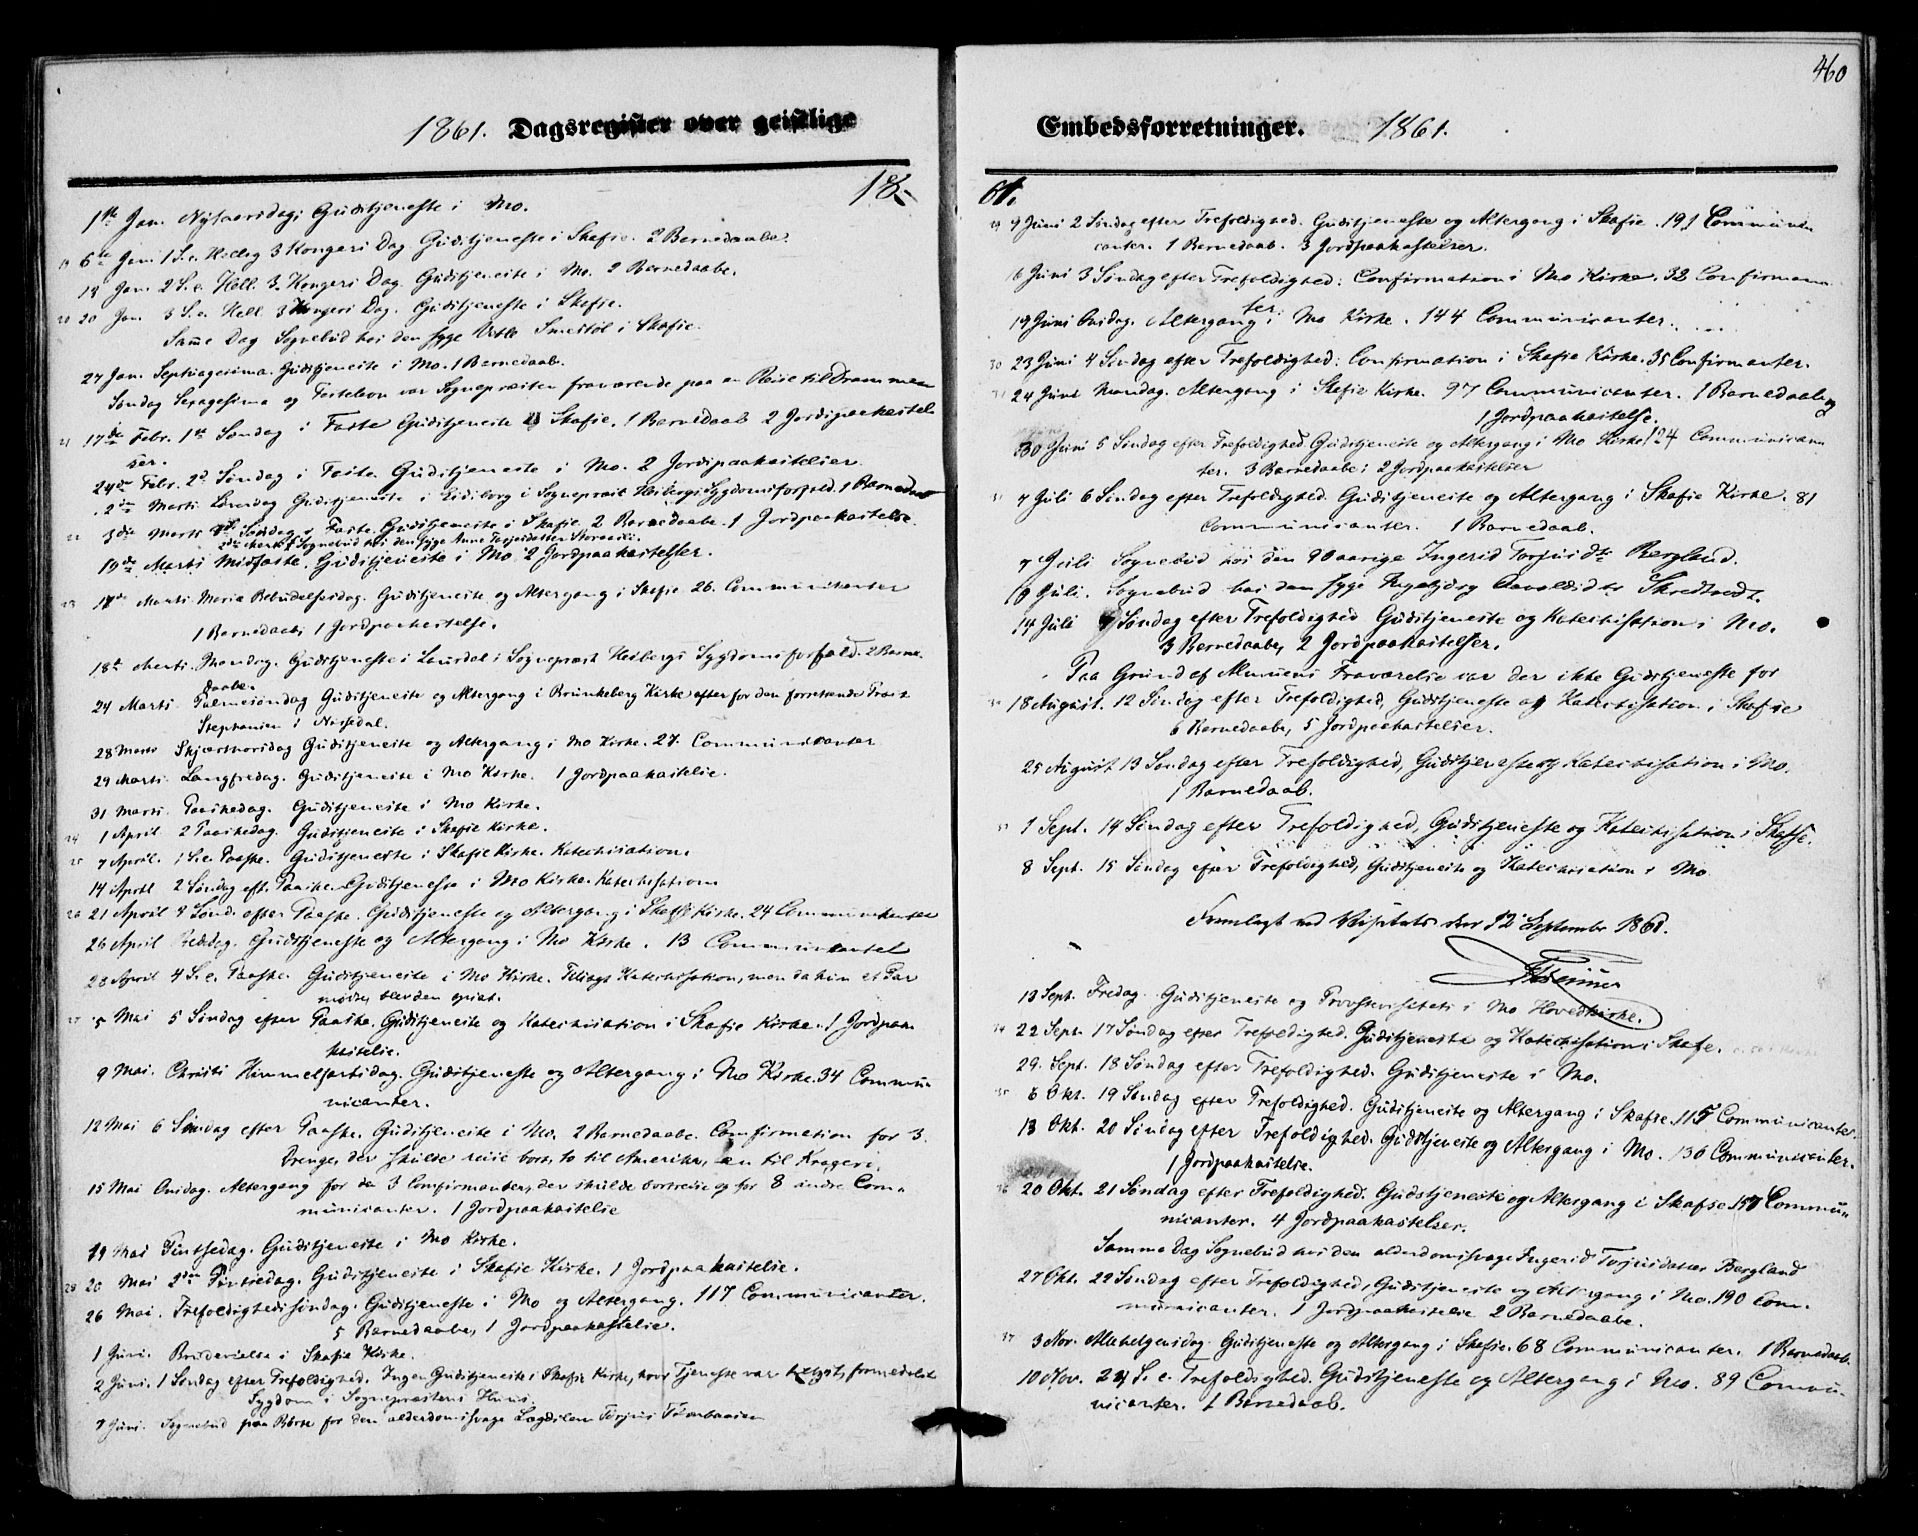 1861. Dagsregister over geistlige
18-
1ste Jan. Nytaarsdag; Gudstjeneste i Mo.
19 6te Jan. 1 S. e. Hellig 3 Kongers Dag. Gudstjeneste i Skafse. 2 Barnedaabe.
13 Jan. 2 S. e. Hell. 3 Kongers Dag. Gudstjeneste i Mo. 2 Barnedaabe.
20 20 Jan. 3 S. e. Hell. 3 Kongers Dag. Gudstjeneste i Skafse.
Samme Dag Sognebud hos den syge i Skafse.
27 Jan. Septuagesima. Gudstjeneste i Mo. 1 Barnedaab.
Søndag Sexagesima og Fastelavn var Sognepræsten fraværende paa en Reise til Drammen
21 17de Febr. 1ste Søndag i Faste Gudstjeneste i Skafse. 1 Barnedaab 2 Jordspaakastel
ser.
24de Febr. 2d Søndag i Faste. Gudstjeneste i Mo. 2 Jordspaakastelser.
2den Marts Løverdag Gudstjeneste i Eidsborg i Sognepræst Heibergs Sygdomsforfald. 1 Barnedaab
22 3die Marts Søndag i Faste. Gudstjeneste i Skafse. 2 Barnedaabe. 1 Jordpaakastelse.
Sognebud hos den syge Anne Torjusdatter
10de Marts Midfaste. Gudstjeneste i Mo 2 Jordpaakastelser.
23 17de Marts Maria Bebudelsesdag. Gudstjeneste og Altergang i Skafse. 26. Communicanter
1 Barnedaab; 1 Jordpaakastelse.
18de Marts. Mandag. Gudstjeneste i Laurdal i Sognepræst Heibergs Sygdomsforfald. 2 Barne-
daabe.
24 Marts. Palmesøndag Gudstjeneste og Altergang i Brunkeberg Kirke efter for den forrettende Provst
Stephansen i Nissedal.
28 Marts Skjærthorsdag Gudstjeneste og Altergang i Mo Kirke. 27. Communicanter
29 Marts. Langfredag. Gudstjeneste i Mo Kirke. 1 Jordpaakastelse.
31 Marts. Paaskedag. Gudstjeneste i Mo Kirke.
24 1 April 2 Paaskedag. Gudstjeneste i Skafse Kirke.
25 7 April. 1 S. e. Paaske. Gudstjeneste i Skafse Kirke. Katechisation.
14 April 2 Søndag eft. Paaske. Gudstjeneste i Mo Kirke. Katechisation
26 21 April 3 Sønd. efter Paaske. Gudstjeneste og Altergang i Skafse Kirke. 24 Communicanter
26 April Bededag. Gudstjeneste og Altergang i Mo Kirke. 13 Communicanter
28 April 4 S. e. Paaske. Gudstjeneste i Mo Kirke. Tillagt Katechisation, men da kun et Par
mødte, blev den opsat.
27 5 Mai 5 Søndag efter Paaske. Gudstjeneste og Katechisation i Skafse Kirke. 1 Jordpaa-
kastelse.
9 Mai. Christi Himmelfartsdag. Gudstjeneste og Altergang i Mo Kirke. 34 Commu-
nicanter.
12 Mai 6 Søndag efter Paaske. Gudstjeneste i Mo. 2 Barnedaabe. Confirmation for 3
Drenge, der skulde reise bort, to til Amerika, en til Kragerø.
15 Mai Onsdag. Altergang for de 3 Confirmanter, der skulde bortreise og for 8 andre Com-
municanter. 1 Jordpaakastelse
19 Mai Pintsedag. Gudstjeneste i Mo Kirke.
28 20 Mai 2den Pintsedag. Gudstjeneste i Skafse Kirke. 1 Jordpaakastelse.
26 Mai. Trefoldighedssøndag. Gudstjeneste i Mo og Altergang. 117 Communicanter.
5 Barnedaabe, 1 Jordpaakastelse.
1 Juni. Brudevielse i Skafse Kirke.
2 Juni. 1 Søndag efter Trefoldighed. Ingen Gudstjeneste i Skafse Kirke, hvor Tjeneste var belyst, formedelst
Sygdom i Sognepræstens Huus.
7 Juni. Sognebud paa Børte for den alderdomssvage Torjus
460
Embedsforretninger. 1861.
61.
29 9 Juni 2 Søndag efter Trefoldighed. Gudstjeneste og Altergang i Skafse. 191 Communi-
canter. 1 Barnedaab. 3 Jordpaakastelser.
16 Juni 3 Søndag efter Trefoldighed: Confirmation i Mo Kirke. 32 Confirman-
ter.
19 Juni Onsdag. Altergang i Mo Kirke. 144 Communicanter.
30 23 Juni 4 Søndag efter Trefoldighed: Confirmation i Skafse Kirke. 35 Confirmanter.
31 24 Juni Mandag. Altergang i Skafse Kirke. 97 Communicanter. 1 Barnedaab og
1 Jordpaakastelse.
30 Juni 5 Søndag efter Trefoldighed. Gudstjeneste og Altergang i Mo Kirke. 124 Communican
ter. 3 Barnedaabe; 2 Jordpaakastelser
7 Juli 6 Søndag efter Trefoldighed. Gudstjeneste og Altergang i Skafse Kirke. 81
Communicanter. 1 Barnedaab.
7 Juli Sognebud hos den 90 aarige Ingerid Torjusdtr Bergland.
9 Juli. Sognebud hos den syge Ingebjørg
14 Juli 7 Søndag efter Trefoldighed Gudstjeneste og Katechisation i Mo.
3 Barnedaabe, 2 Jordpaakastelser.
Paa Grund af Almuens Fraværelse var der ikke Gudstjeneste før
18 August. 12 Søndag efter Trefoldighed, Gudstjeneste og Katechisation i Skafse
6 Barnedaabe, 5 Jordpaakastelser.
25 August 13 Søndag efter Trefoldighed, Gudstjeneste og Katechisation i Mo.
1 Barnedaab.
33 1 Sept. 14 Søndag efter Trefoldighed, Gudstjeneste og Katechisation i Skafse.
8 Sept. 15 Søndag efter Trefoldighed, Gudstjeneste og Katechisation i Mo
Fremlagt ved Visitats den 12 September 1861.
13 Sept. Fredag. Gudstjeneste og Provstevisitats i Mo Hovedkirke.
34 22 Sept. 17 Søndag efter Trefoldighed. Gudstjeneste og Katechisation i Skafse.
29. Sept. 18 Søndag efter Trefoldighed. Gudstjeneste i Mo.
35 6 Okt. 19 Søndag efter Trefoldighed. Gudstjeneste og Altergang i Skafse. 115 Communicanter.
13 Okt. 20 Søndag efter Trefoldighed. Gudstjeneste og Altergang i Mo. 136 Communicanter.
1 Jordpaakastelse.
36 20 Okt. 21 Søndag efter Trefoldighed. Gudstjeneste og Altergang i Skafse. 157 Commu-
nicanter. 4 Jordpaakastelser.
Samme Dag Sognebud hos den alderdomssvage Ingerid Torjusdatter Bergland
27 Okt. 22 Søndag efter Trefoldighed, Gudstjeneste og Altergang i Mo. 190 Com-
municanter. 1 Jordpaakastelse 2 Barnedaabe.
37 3 Nov. Allehelgensdag. Gudstjeneste og Altergang i Skafse. 68 Communicanter. 1 Barnedaab.
10 Nov. 24 S. e. Trefoldighed. Gudstjeneste og Altergang i Mo. 89 Commu-
nicanter. 1 Barnedaab.